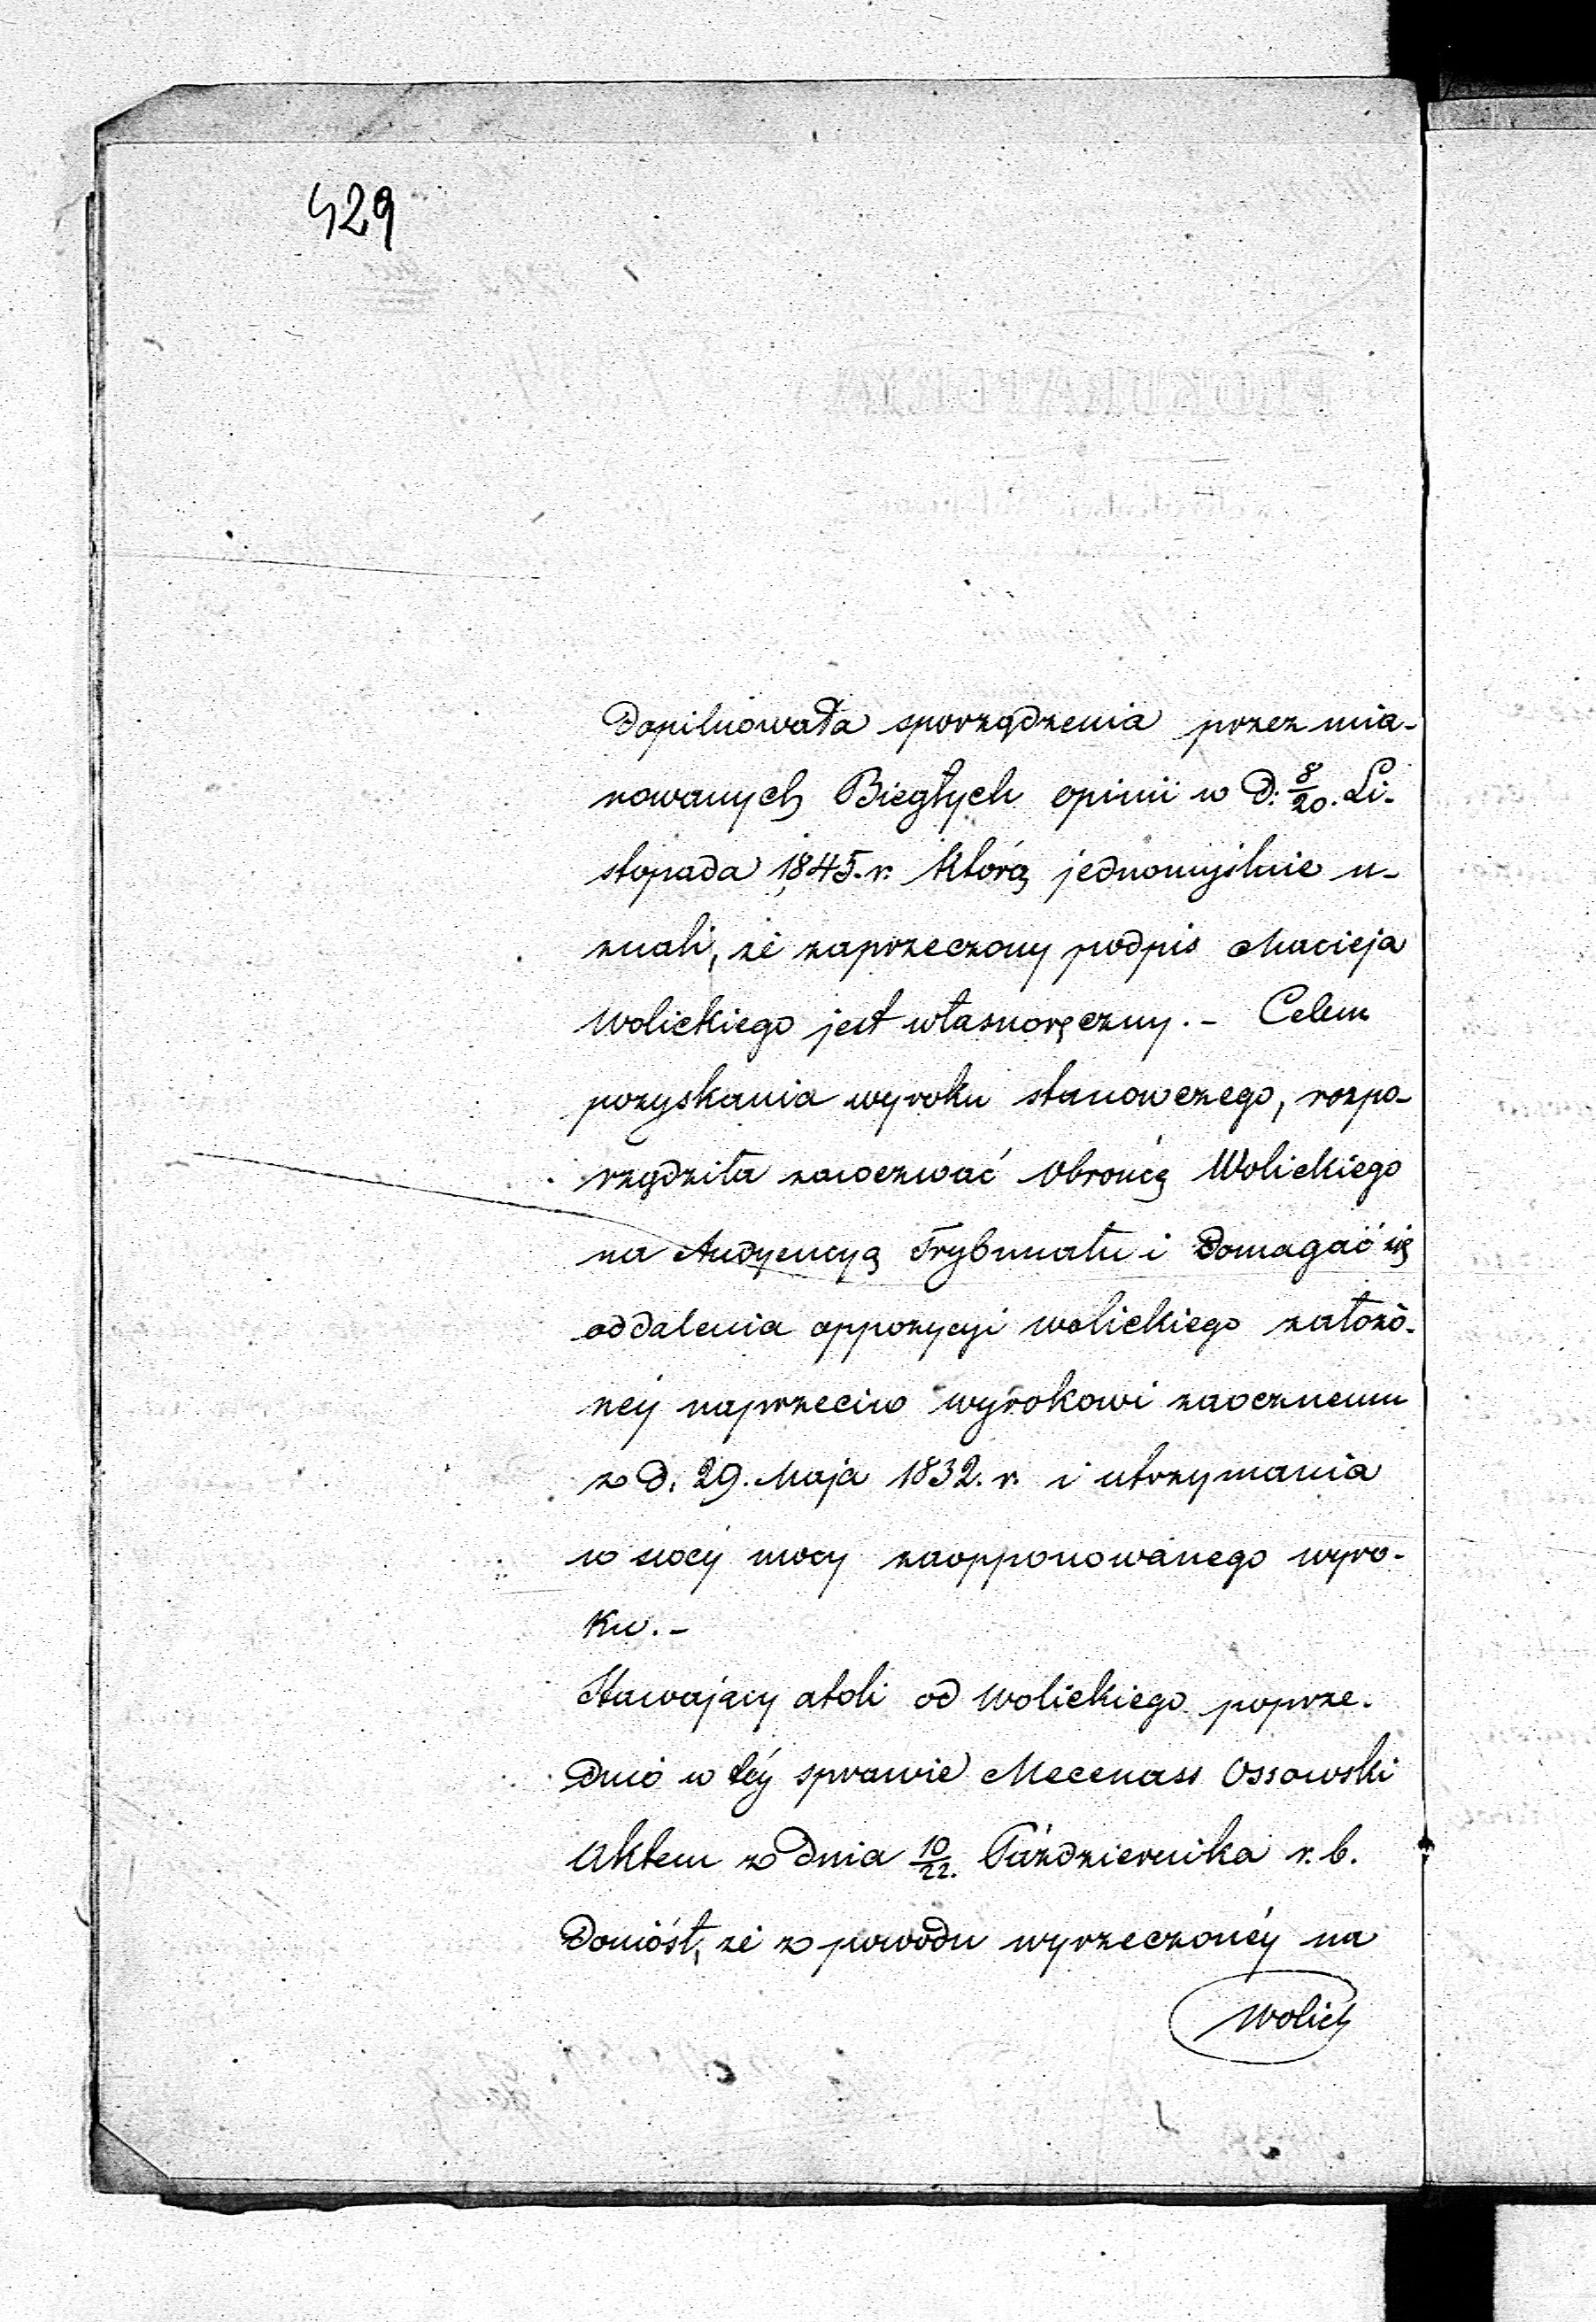 429
dopilnowała sporządzenia przez mia-
nowanych Biegłych opinii w d: 8/20. Li-
stopada 1845. r. którą jednomyślnie u-
znali, że zaprzeczony podpis Macieja
Wolickiego jest własnoręczny. - Celem
pozyskania wyroku stanowczego, rozpo-
rządziła zawezwać Obrońcę Wolickiego
na Audyencyą Trybunału i domagać się
oddalenia oppozycyi Wolickiego założo-
néy naprzeciw wyrokowi zaocznemu
z d. 29. Maja 1832. r. i utrzymania
w swéj mocy zaopponowanego wyro-
ku. -
Stawający atoli od Wolickiego poprze-
dnio w téy sprawie Mecenass Ossowski
Aktem z dnia 10/22. Października r. b.
doniósł, że z powodu wyrzeczonéy na
Wolick